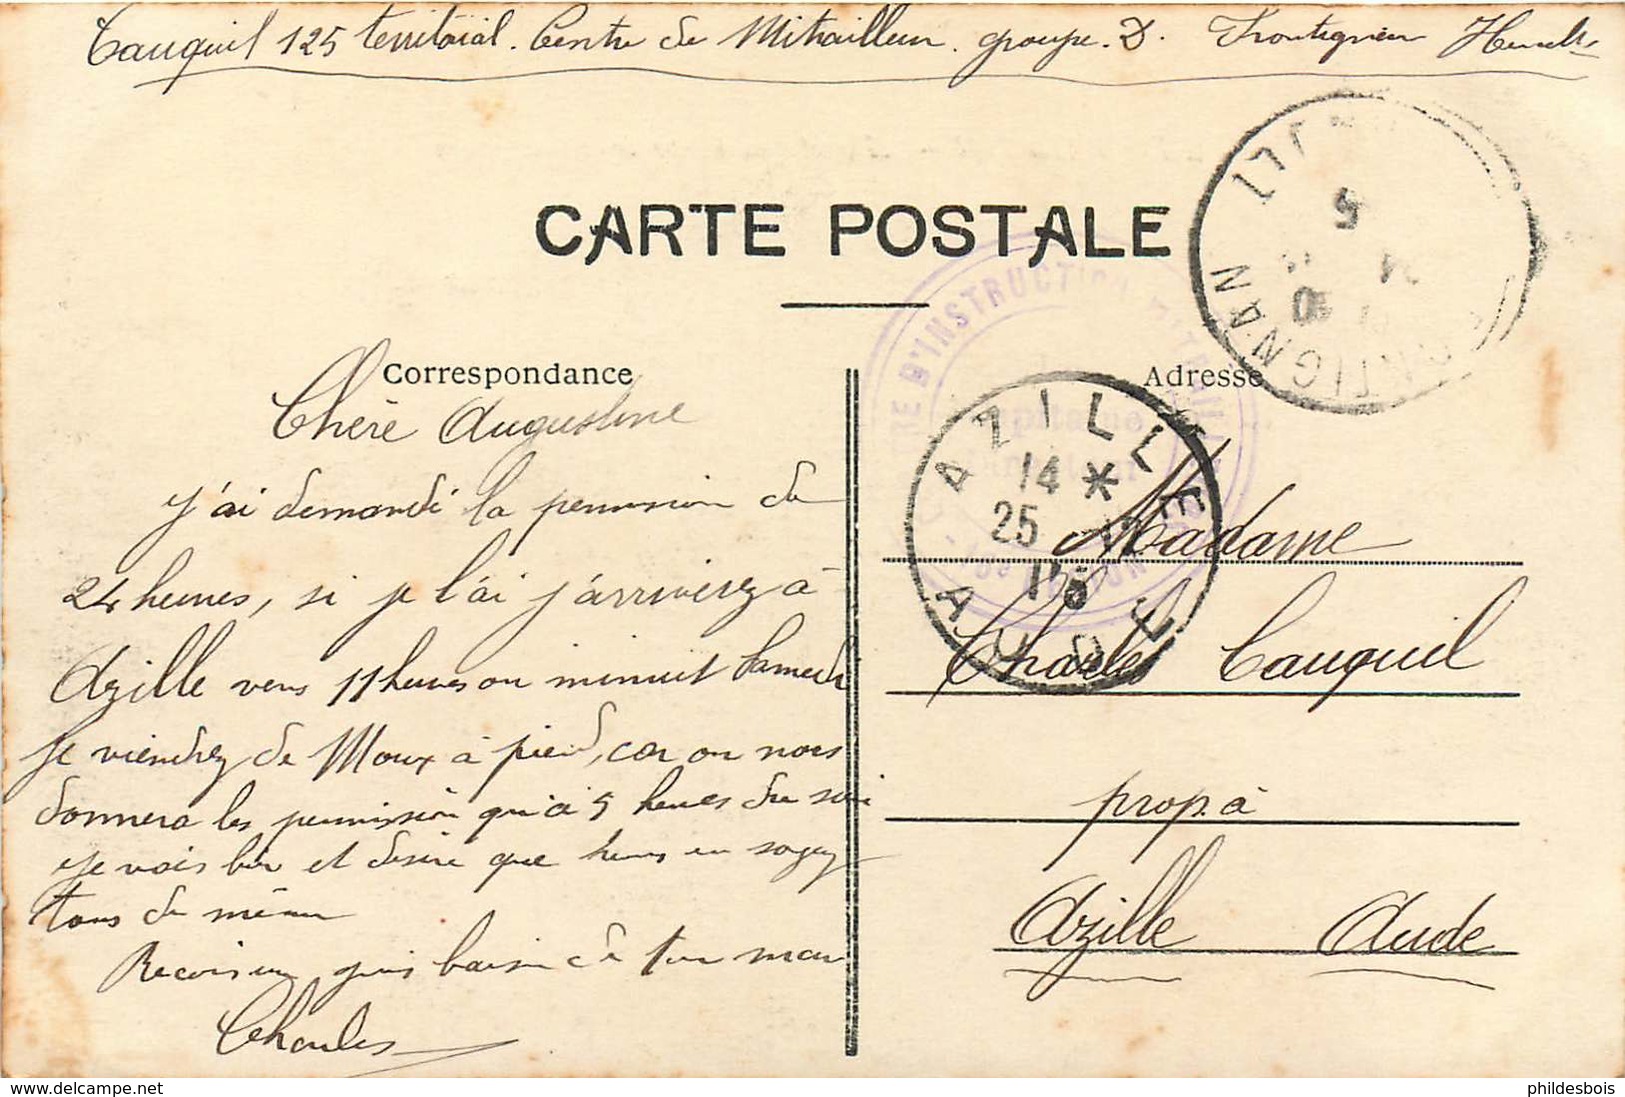 Cauquil 125 territoiial. Centre de Mitrailleur. groupe. D. Frontignan Herault
CARTE POSTALE
Correspondance
Chère Augustine
j'ai demandé la permission de
24 heures, si je l'ai j'arriverez à
Azille vers 11 heures ou minuit Samedi
je viendrez de Moux à pied, car on nous
donnera les permission qu'à 5 heures du soir
je vais bien et désire que vous en soyez
tous de même
Recois un gros baiser de ton mari
Charles
Adresse
Madame
Charles Cauquil
prop. à
Azille Aude
FRONTIGNAN
5
D'INSTRUCTION
AZILLE
14 *
25
15
AUDE
www.delcampe.net
phildesbois